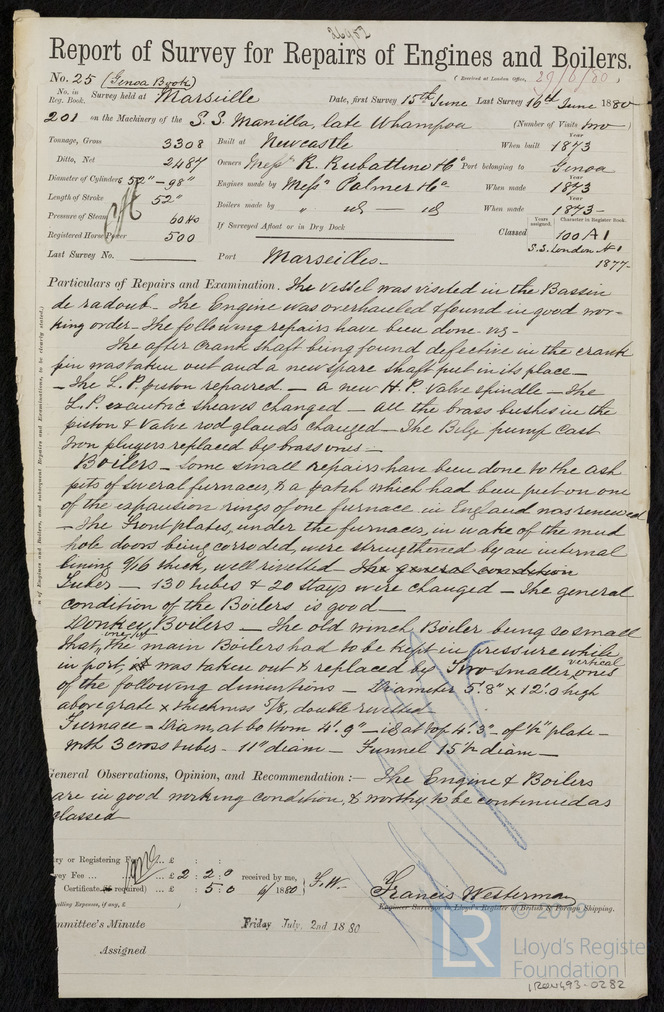 26982
Report of Survey for Repairs of Engines and Boilers.
No. 25 (Genoa Book) (Received at London Office, 29/6/80)
No. in Reg. Book. Survey held at Marseille Date, first Survey 15th June Last Survey 16th June 1880
201 on the Machinery of the S.S. Manilla, late Whampoa (Number of Visits two)
Tonnage, Gross 3308 Built at Newcastle When built Year 1873
Ditto, Net 2487 Owners Messrs R. Rubattino & Co Port belonging to Genoa
Diameter of Cylinders 52" – 98" Engines made by Messrs Palmer & Co When made Year 1873
Length of Stroke 52" Boilers made by " id – id When made Year 1873
Pressure of Steam 60 lbs If Surveyed Afloat or in Dry Dock Classed Years assigned. Character in Register Book. 100 A1
Registered Horse Power 500 S.S. London
Last Survey No. — Port Marseilles 1877
Particulars of Repairs and Examination. The vessel was visited in the Bassin
de radoub. The Engine was overhauled & found in good wor-
king order – The following repairs have been done viz –
The after crank shaft being found defective in the crank
pin was taken out and a new spare shaft put in its place –
– The L.P. piston repaired. – a new H.P. Valve spindle – The
L.P. excentric sheaves changed – all the brass bushes in the
piston & Valve rod glands changed – The Bilge pump cast
Iron plungers replaced by brass ones –
Boilers – Some small repairs have been done to the ash
pits of several furnaces, & a patch which had been put on one
of the expansion rings of one furnace in England was renewed
– The Front plates, under the furnaces, in wake of the mud
hole doors being corroded, were strengthened by an internal
lining 9/16 thick, well rivetted The general condition
Tubes – 130 tubes & 20 stays were changed – The general
condition of the Boilers is good –
Donkey Boilers – The old winch Boiler being so small
that, one of the main Boilers had to be kept in pressure while
in port, it was taken out & replaced by Two smaller vertical ones
of the following dimentions – Diameter 5'.8" x 12'.0 high
above grate x thickness 5/8, double rivetted
Furnace – Diam, at bottom 4'.9" – id at top 4'.3" – of 1/2" plate –
with 3 cross tubes – 11" diam – Funnel 15 1/2 diam –
General Observations, Opinion, and Recommendation :— The Engine & Boilers
are in good working condition, & worthy to be continued as
classed
try or Registering Fee ... £ : :
vey Fee ... ... £ 2 : 2 : 0 received by me,
Certificate (if required) ... £ : 5 : 0 1880 F.W. Francis Westerman
velling Expenses, if any, £ ) Engineer Surveyor to Lloyd's Register of British & Foreign Shipping.
mmittee's Minute Friday July. 2nd 1880
Assigned
© 2019
LR
Lloyd's Register
Foundation
IRON493-0282
m of Engines and Boilers, and subsequent Repairs and Examinations, to be clearly stated.)